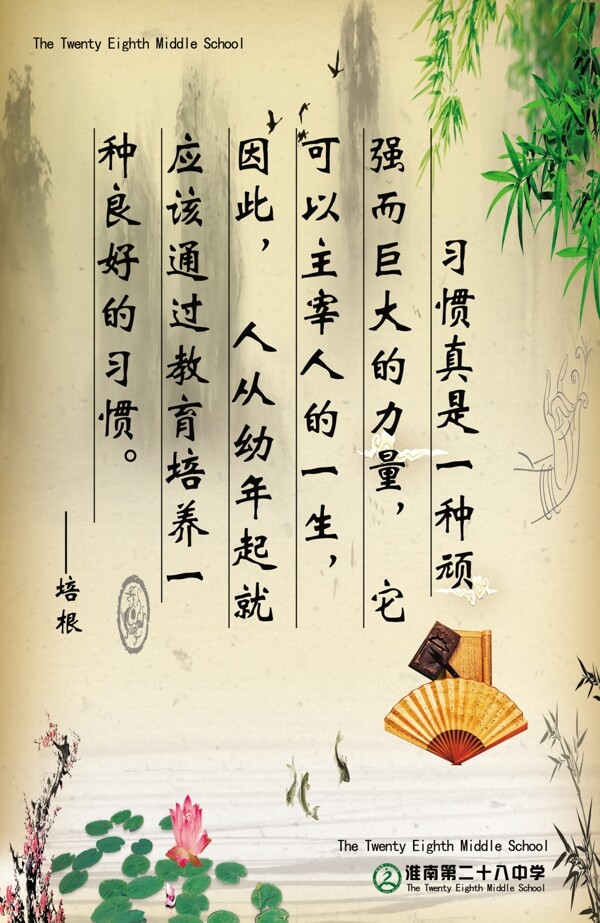 The Twenty Eighth Middle School
习惯真是一种顽
强而巨大的力量，它
可以主宰人的一生，
因此，人从幼年起就
应该通过教育培养一
种良好的习惯。
——培根
The Twenty Eighth Middle School
淮南第二十八中学
The Twenty Eighth Middle School